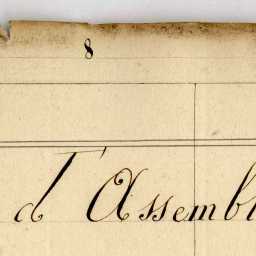 8
d'Assembl